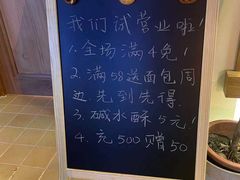 我们试营业啦!
1.全场满4免1
2.满58送面包周
边.先到先得.
3.碱水酥5元!
4.充500赠50